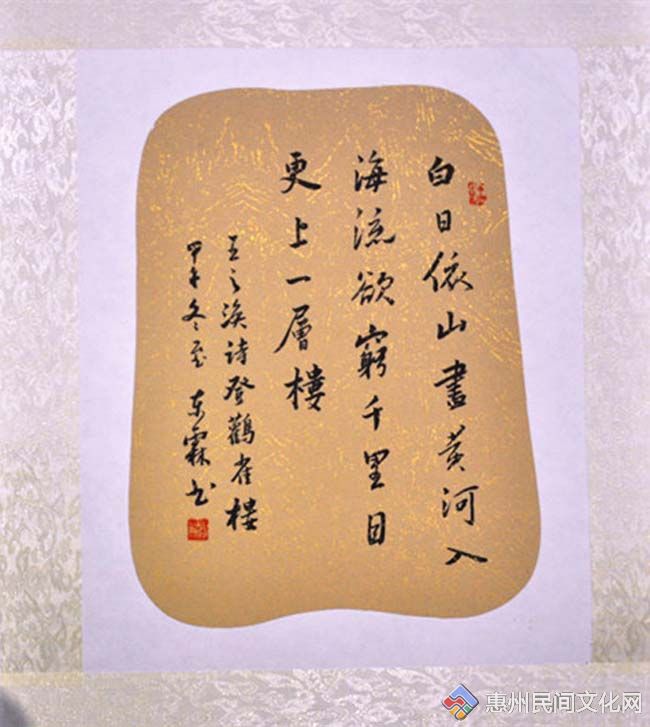 白日依山盡黃河入
海流欲窮千里目
更上一層樓
王之渙诗登鸛雀樓
甲午冬至 东霖书
惠州民间文化网